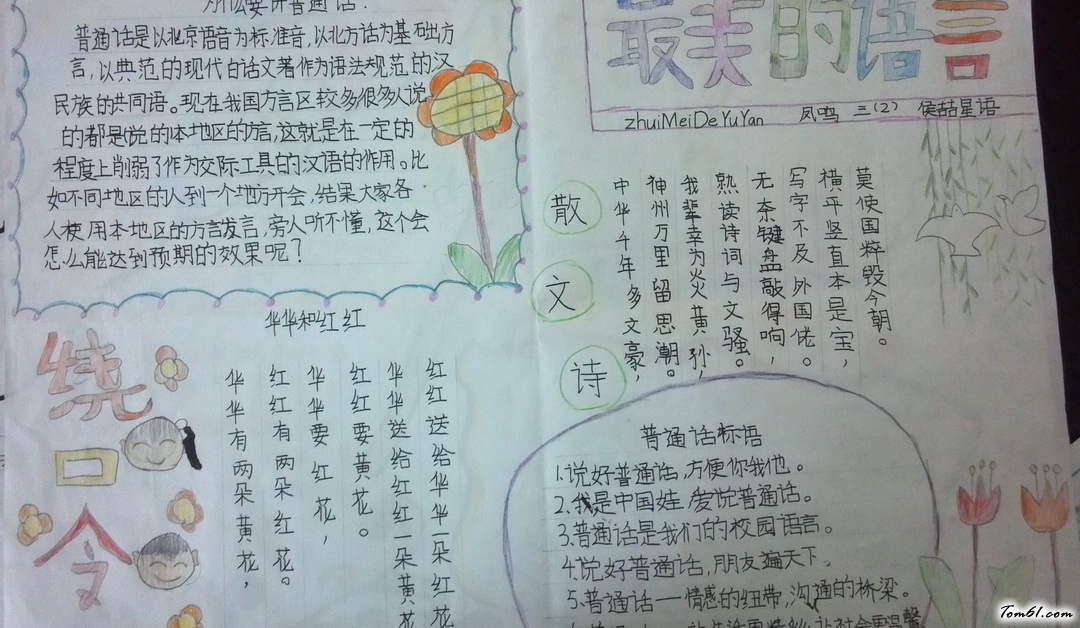 为什么要讲普通话?
普通话是以北京语音为标准音,以北方话为基础方
言,以典范的现代白话文著作为语法规范的汉
民族的共同语。现在我国方言区较多很多人说
的都是说的本地区的方言,这就是在一定的
程度上削弱了作为交际工具的汉语的作用。比
如不同地区的人到一个地方开会,结果大家各
人使用本地区的方言发言,旁人听不懂,这个会
怎么能达到预期的效果呢?
最美的语言
zhuiMeiDeYuYan 凤鸣 三(2) 侯喆星语
散文诗
中华千年多文豪,
神州万里留思潮。
我辈幸为炎黄孙,
熟读诗词与文骚。
无奈键盘敲得响,
写字不及外国佬。
横平竖直本是宝,
莫使国粹毁今朝。
绕口令
华华和红红
华华有两朵黄花,
红红有两朵红花。
华华要红花,
红红要黄花。
华华送给红红一朵黄花
红红送给华华一朵红花
普通话标语
1.说好普通话,方便你我他。
2.我是中国娃,爱说普通话。
3.普通话是我们的校园语言。
4.说好普通话,朋友遍天下。
5.普通话——情感的纽带,沟通的桥梁。
Tom61.com